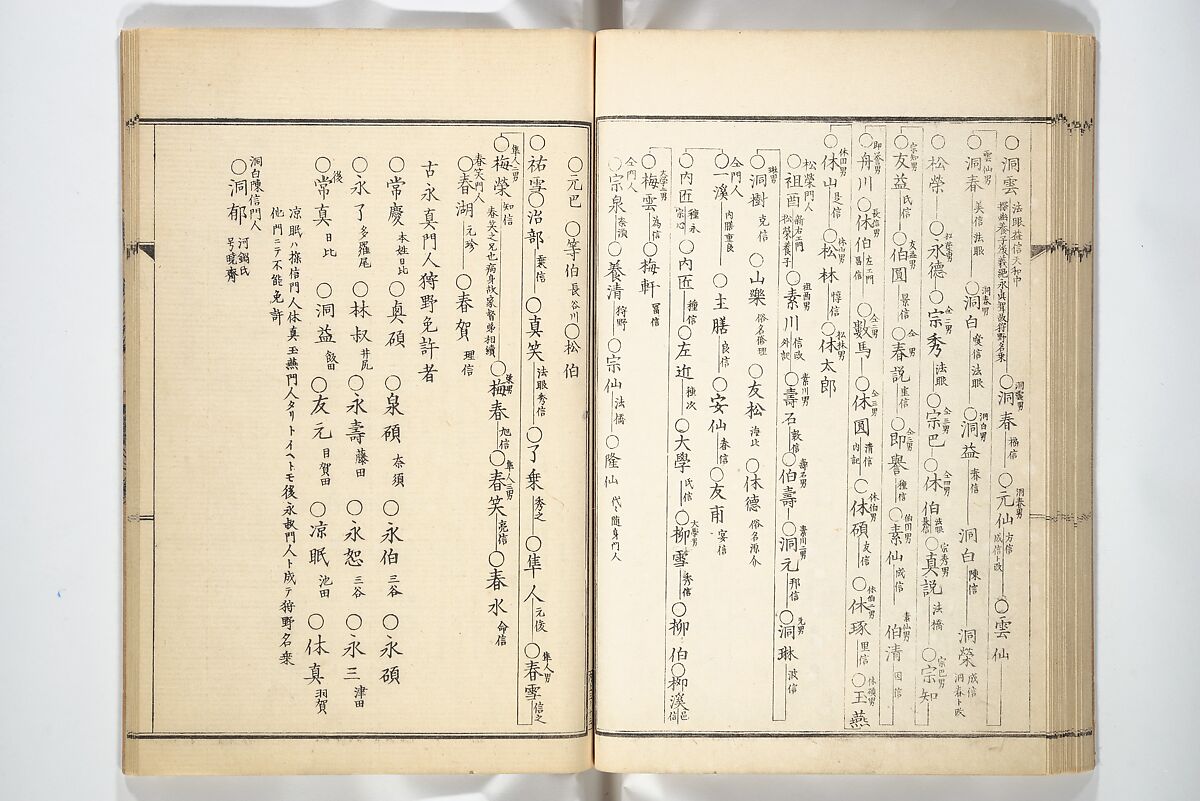 洞雲 法眼益信天和中 探幽養子為義絶永眞譽故狩野名乗 洞雲男 洞春 福信 洞春男 元仙 方信 成信ト改 雲仙
雲仙男 洞春 美信 法眼 洞春男 洞白 愛信 法眼 洞白男 洞益 春信 洞白 陳信 洞榮 成信 洞春ト改
松榮 松榮男 永德 仝二男 宗秀 法眼 仝三男 宗巴 仝四男 休伯 法眼 宗秀男 真説 法橋 宗巴男 宗知
宗知男 友益 氏信 友益男 伯圓 景信 仝男 春説 重信 仝二男 即譽 種信 伯圓男 素仙 成信 素仙男 伯清 因信
即譽男 舟川 長信男 休伯 左エ門 昌信 仝二男 數馬 仝三男 休圓 清信 内記 休伯男 休碩 友信 休伯二男 休琢 里信 休碩男 玉燕
休円男 休山 是信 休山男 松林 惇信 松林男 休太郎
松榮門人 祖酉 新右エ門 松榮養子 祖酉男 素川 信政 外記 素川男 壽石 敦信 壽石男 伯壽 素川二男 洞元 邦信 元男 洞琳 波信
琳男 洞樹 克信 山樂 俗名脩理 友松 海北 休德 俗名源介
仝門人 一溪 内膳重良 主膳 良信 安仙 春信 友甫 安信
内匠 種永 宗心 内匠 種信 左近 種次 大學 氏信 大學男 柳雪 秀信 柳伯 柳溪 邑信
大學二男 梅雲 為信 梅軒 冨信
仝門人 宗泉 泰演 養清 狩野 宗仙 法橋 隆仙 代々随身門人
元巴 等伯 長谷川 松伯
祐雪 治部 乗信 真笑 法眼秀信 了乗 秀之 隼人 元俊 隼人男 春雪 信之
隼人二男 梅榮 知信 春笑之兄也病身故家督弟相續 榮男 梅春 旭信 隼人三男 春笑 亮信 春水 命信
春笑門人 春湖 元珍 春賀 理信
古永真門人狩野免許者
常慶 本姓日比 奥碩 泉碩 奈須 永伯 三谷 永碩
永了 多羅尾 林叔 井尻 永壽 藤田 永恕 三谷 永三 津田
後 常真 日比 洞益 飯田 友元 日賀田 凉眠 池田 休真 羽賀
凉眠ハ探信門人休真玉燕門人タリトイヘトモ後永叔門人ト成テ狩野名乗
他門ニテ不能免許
洞白陳信門人 洞郁 河鍋氏 号曉齋